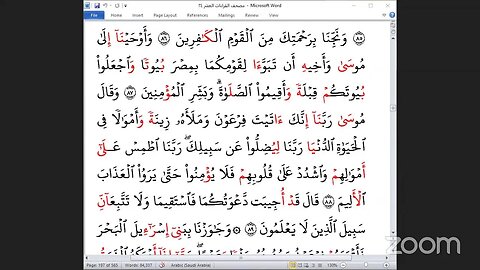 مصحف القراءات العشر 15 - Microsoft Word
File Home Insert Page Layout References Mailings Review View
﴿٨٥﴾ وَنَجِّنَا بِرَحْمَتِكَ مِنَ الْقَوْمِ الْكَافِرِينَ ﴿٨٦﴾ وَأَوْحَيْنَا إِلَىٰ
مُوسَىٰ وَأَخِيهِ أَن تَبَوَّءَا لِقَوْمِكُمَا بِمِصْرَ بُيُوتًا وَاجْعَلُوا
بُيُوتَكُمْ قِبْلَةً وَأَقِيمُوا الصَّلَوٰةَ ۗ وَبَشِّرِ الْمُؤْمِنِينَ ﴿٨٧﴾ وَقَالَ
مُوسَىٰ رَبَّنَا إِنَّكَ ءَاتَيْتَ فِرْعَوْنَ وَمَلَأَهُۥ زِينَةً وَأَمْوَٰلًا فِي
الْحَيَوٰةِ الدُّنْيَا رَبَّنَا لِيُضِلُّوا عَن سَبِيلِكَ ۖ رَبَّنَا اطْمِسْ عَلَىٰ
أَمْوَٰلِهِمْ وَاشْدُدْ عَلَىٰ قُلُوبِهِمْ فَلَا يُؤْمِنُوا حَتَّىٰ يَرَوُا الْعَذَابَ
الْأَلِيمَ ﴿٨٨﴾ قَالَ قَدْ أُجِيبَت دَّعْوَتُكُمَا فَاسْتَقِيمَا وَلَا تَتَّبِعَآنِّ
سَبِيلَ الَّذِينَ لَا يَعْلَمُونَ ﴿٨٩﴾ ۞ وَجَٰوَزْنَا بِبَنِي إِسْرَٰٓءِيلَ الْبَحْرَ
Page: 197 of 565 Words: 84,337 Arabic (Saudi Arabia) 130%
zoom